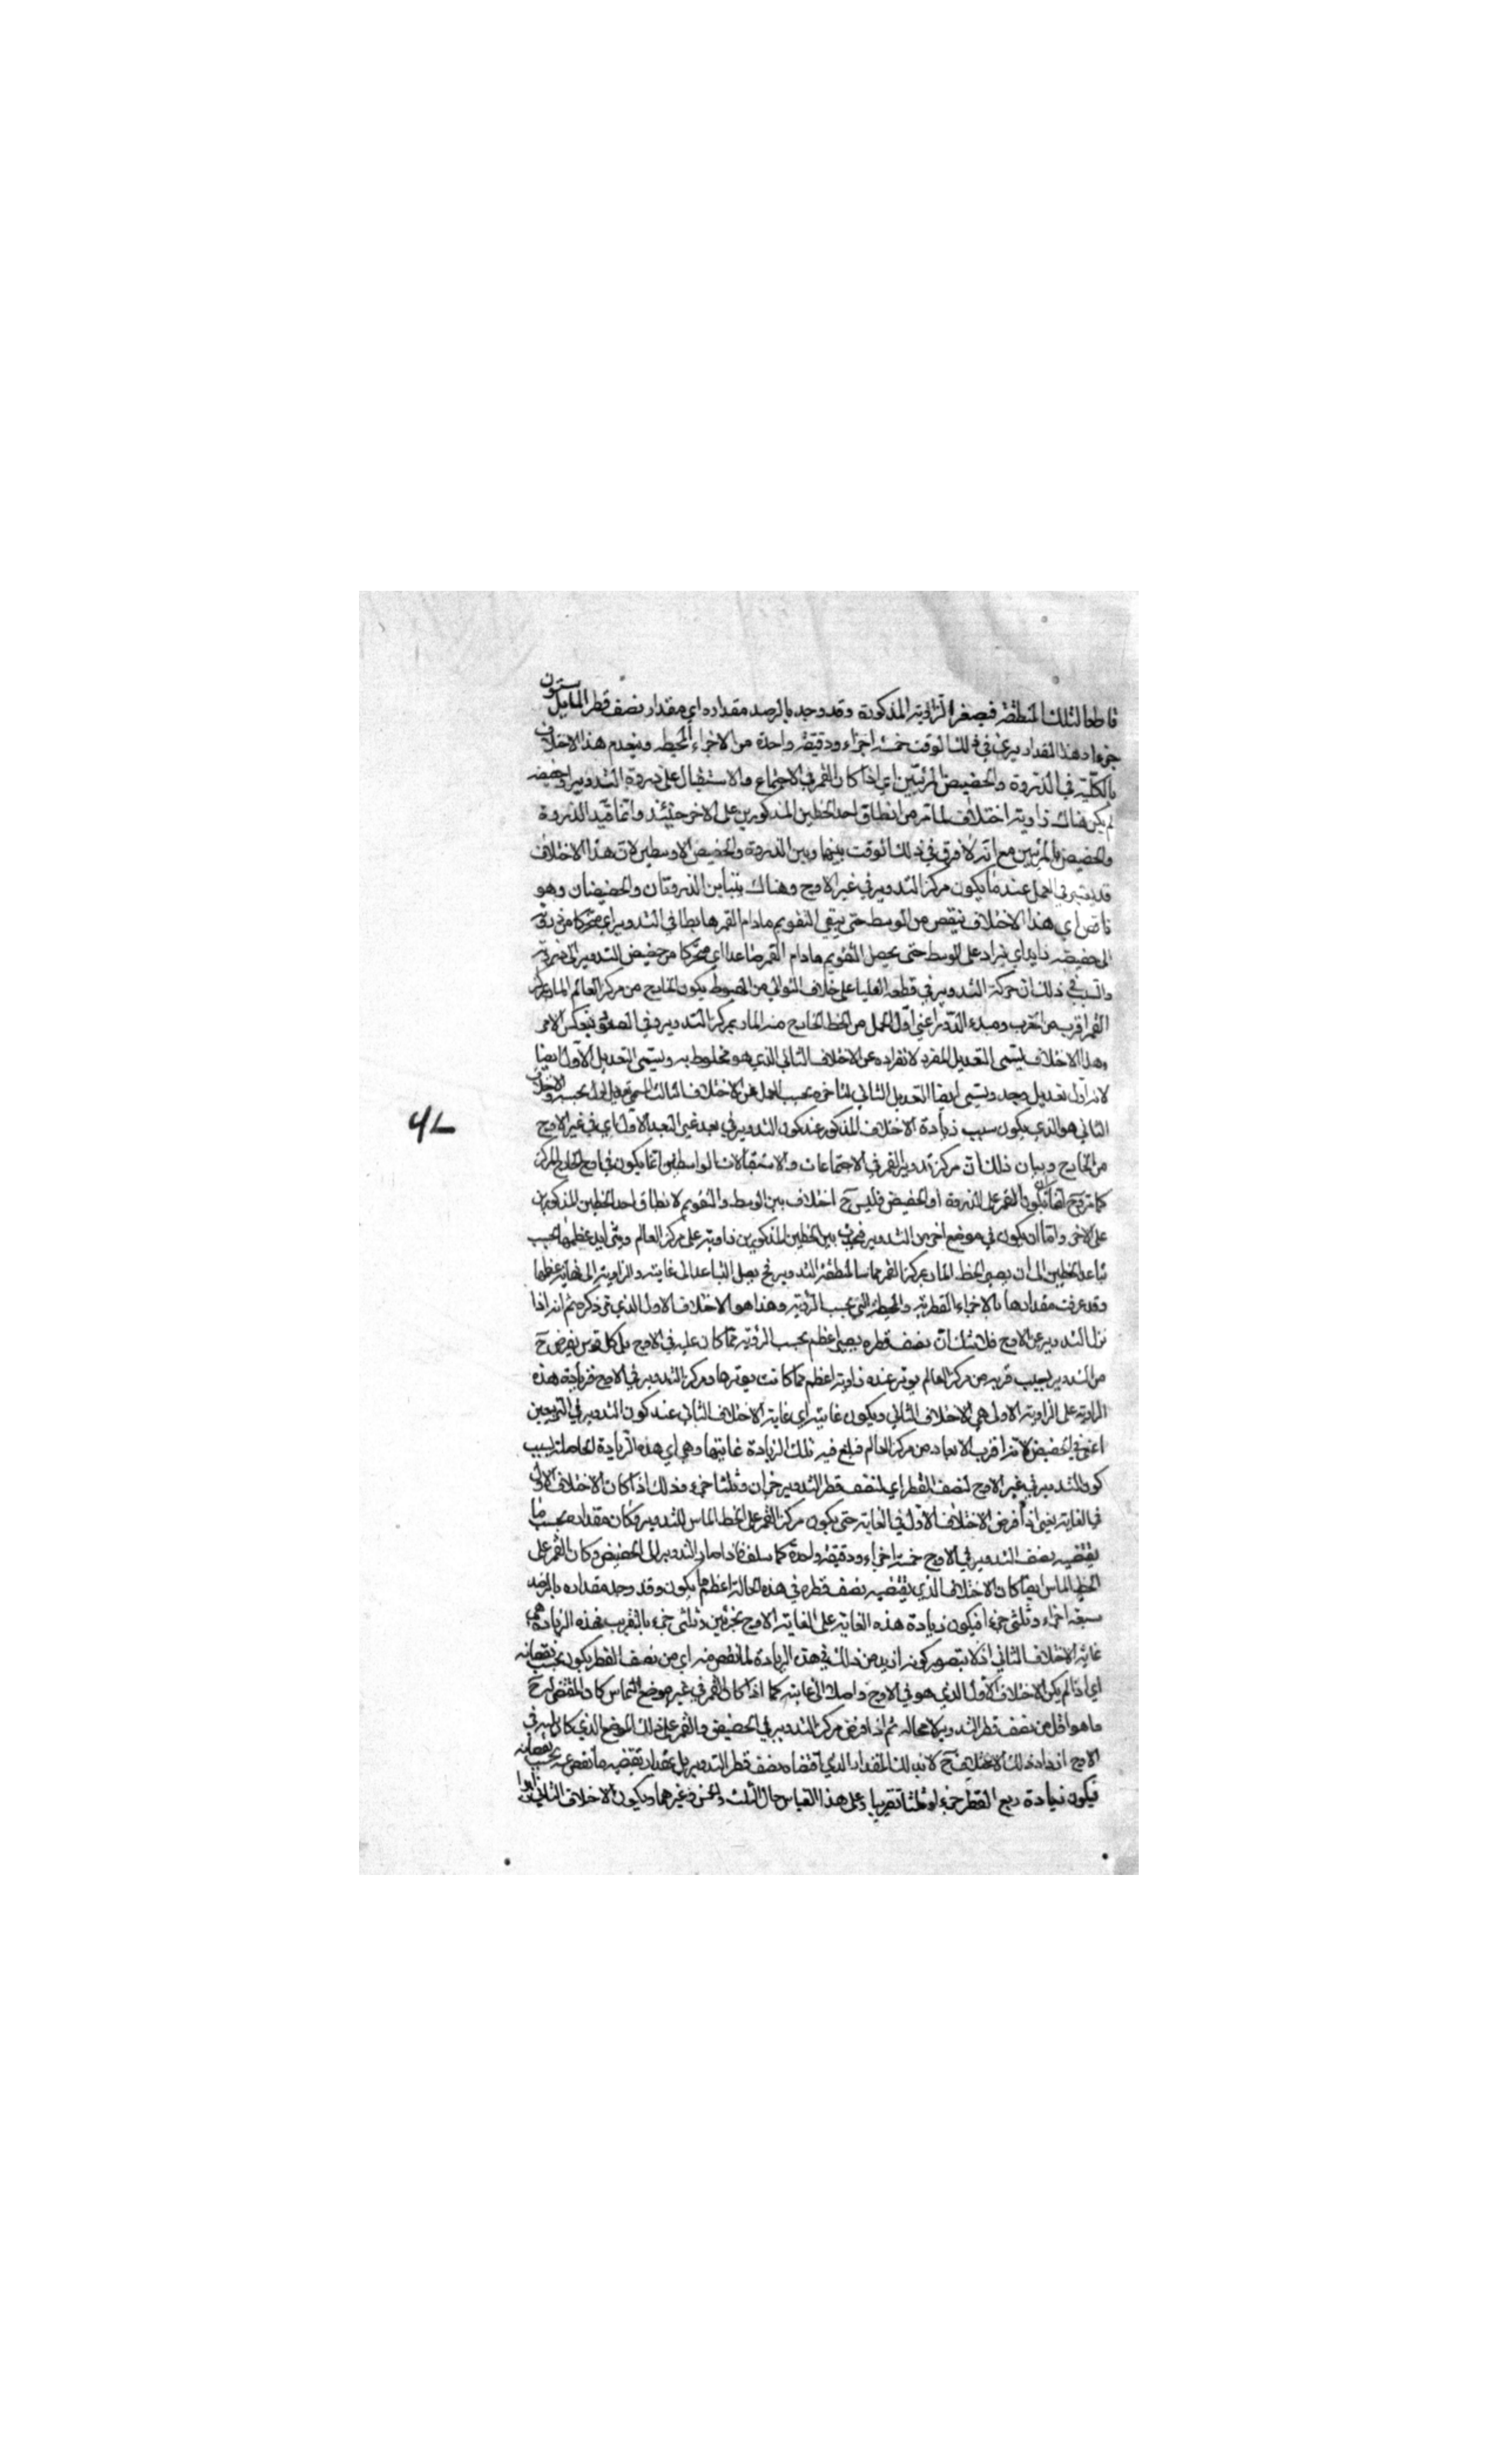 قاطعا لتلك المنطقة فيصغر الزاوية المذكورة وقد وجد بالرصد مقداره اي مقدار نصف قطر المايل ستون
جزءا وهذا المقدار يرى في ذلك الوقت خمسة اجزاء ودقيقة واحدة من الاجزاء المحيطه وينعدم هذا الاختلاف
بالكلية في الذروة والحضيض المرئيين اي اذا كان القمر في الاجتماع والاستقبال على ذروة التدوير او حضيضه
لم يكن هناك زاوية اختلاف لما مر من انطباق احد الخطين المذكورين على الاخر حينئذ وانما قيد الذروة
والحضيض بالمرئيين مع انه لا فرق في ذلك الوقت بينهما وبين الذروة والحضيض الاوسطين لان هذا الاختلاف
قد يعتبر في العمل عند ما يكون مركز التدوير في غير الاوج وهناك يتباين الذروتان والحضيضان وهو
ناقص اي هذا الاختلاف ينقص من الوسط حتى يبقي التقويم مادام القمر هابطا في التدوير اي متحركا من ذروته
الى حضيضه زايد اي يزاد على الوسط حتى يحصل التقويم مادام القمر صاعدا اي متحركا من حضيض التدوير الى ذروته
والسبب في ذلك ان حركة التدوير في قطعه العليا على خلاف التوالي من الهبوط يكون الخارج من مركز العالم المار بمركز
القمر اقرب من الغرب ومبدء الدور اعني اول الحمل من الخط الخارج منه المار بمركز التدوير وفي الصعود ينعكس الامر
وهذا الاختلاف يسمى التعديل المفرد لانفراده عن الاختلاف الثاني الذي هو مخلوط به ويسمى التعديل الاول ايضا
لانه اول تعديل وجد ويسمى ايضا التعديل الثاني لتاخره بحسب العمل عن الاختلاف الثالث المسمى تعديلا اول بحسبه والاختلاف
الثاني هو الذي يكون سبب زيادة الاختلاف المذكور عند كون التدوير في بعد غير البعد الاول اي في غير الاوج
من الخارج وبيان ذلك ان مركز تدوير القمر في الاجتماعات والاستقبالات الواسطيين انما يكون في اوج الخارج المركز
كما مر فح اما ان يكون القمر على الذروة او الحضيض فليس ح اختلاف بين الوسط والتقويم لانطباق احد الخطين المذكورين
على الاخر واما ان يكون في موضع اخر من التدوير فيحدث بين الخطين المذكورين زاوية على مركز العالم ويتزايد عظمها بحسب
تباعد الخطين الى ان يصير الخط المار بمركز القمر مماسا لمنطقة التدوير فح يصل التباعد الى غايته والزاوية الى نهاية عظمها
وقد عرفت مقدارها بالاجزاء القطرية والمحيطية التي بحسب الرؤية وهذا هو الاختلاف الاول الذي مر ذكره ثم انه اذا
نزل التدوير عن الاوج فلا شك ان نصف قطره يصير اعظم بحسب الرؤية مما كان عليه في الاوج بل كل قوس يفرض ح
من التدوير بسبب قربه من مركز العالم يوتر عنده زاوية اعظم مما كانت يوترها ومركز التدوير في الاوج فزيادة هذه
الزاوية على الزاوية الاولى هي الاختلاف الثاني ويكون غايته اي غاية الاختلاف الثاني عند كون التدوير في التربيعين
اعني في الحضيض لانه اقرب الابعاد من مركز العالم فبلغ فيه تلك الزيادة غايتها وهي اي هذه الزيادة الحاصلة بسبب
كون التدوير في غير الاوج لنصف القطر اي لنصف قطر التدوير جزان وثلثا جزء وذلك اذا كان الاختلاف الاول
في الغاية يعني اذا فرض الاختلاف الاول في الغاية حتى يكون مركز القمر على الخط المماس للتدوير وكان مقداره بحسب ما
يقتضيه نصف التدوير في الاوج خمسة اجزاء ودقيقة واحدة كما سلف فاذا صار التدوير الى الحضيض وكان القمر على
الخط المماس ايضا كان الاختلاف الذي يقتضيه نصف قطره في هذه الحالة اعظم ما يكون وقد وجد مقداره بالرصد
سبعة اجزاء وثلثي جزء فيكون زيادة هذه الغاية على الغاية الاوج بجزئين وثلثي جزء بالتقريب فهذه الزيادة هي
غاية الاختلاف الثاني اذ لا يتصور كونه ازيد من ذلك في هذه الزيادة لما نقص منه اي من نصف القطر يكون بحسب نقصانه
اي اذا لم يكن الاختلاف الاول الذي هو في الاوج واصلا الى غايته كما اذا كان القمر في غير موضع التماس كان المقتضي له ح
ما هو اقل من نصف قطر التدوير لا محاله ثم اذا فرض مركز التدوير في الحضيض والقمر على ذلك الموضع الذي كان عليه في
الاوج ازداد ذلك الاختلاف ح لا بذلك المقدار الذي اقتضاه نصف قطر التدوير بل بمقدار يقتضيه ما نقص عنه بحسب نقصانه
فيكون زيادة ربع القطر جزءا وثلثا تقريبا وعلى هذا القياس حال الثلث والخمس وغيرهما ويكون الاختلاف الثاني زايدا